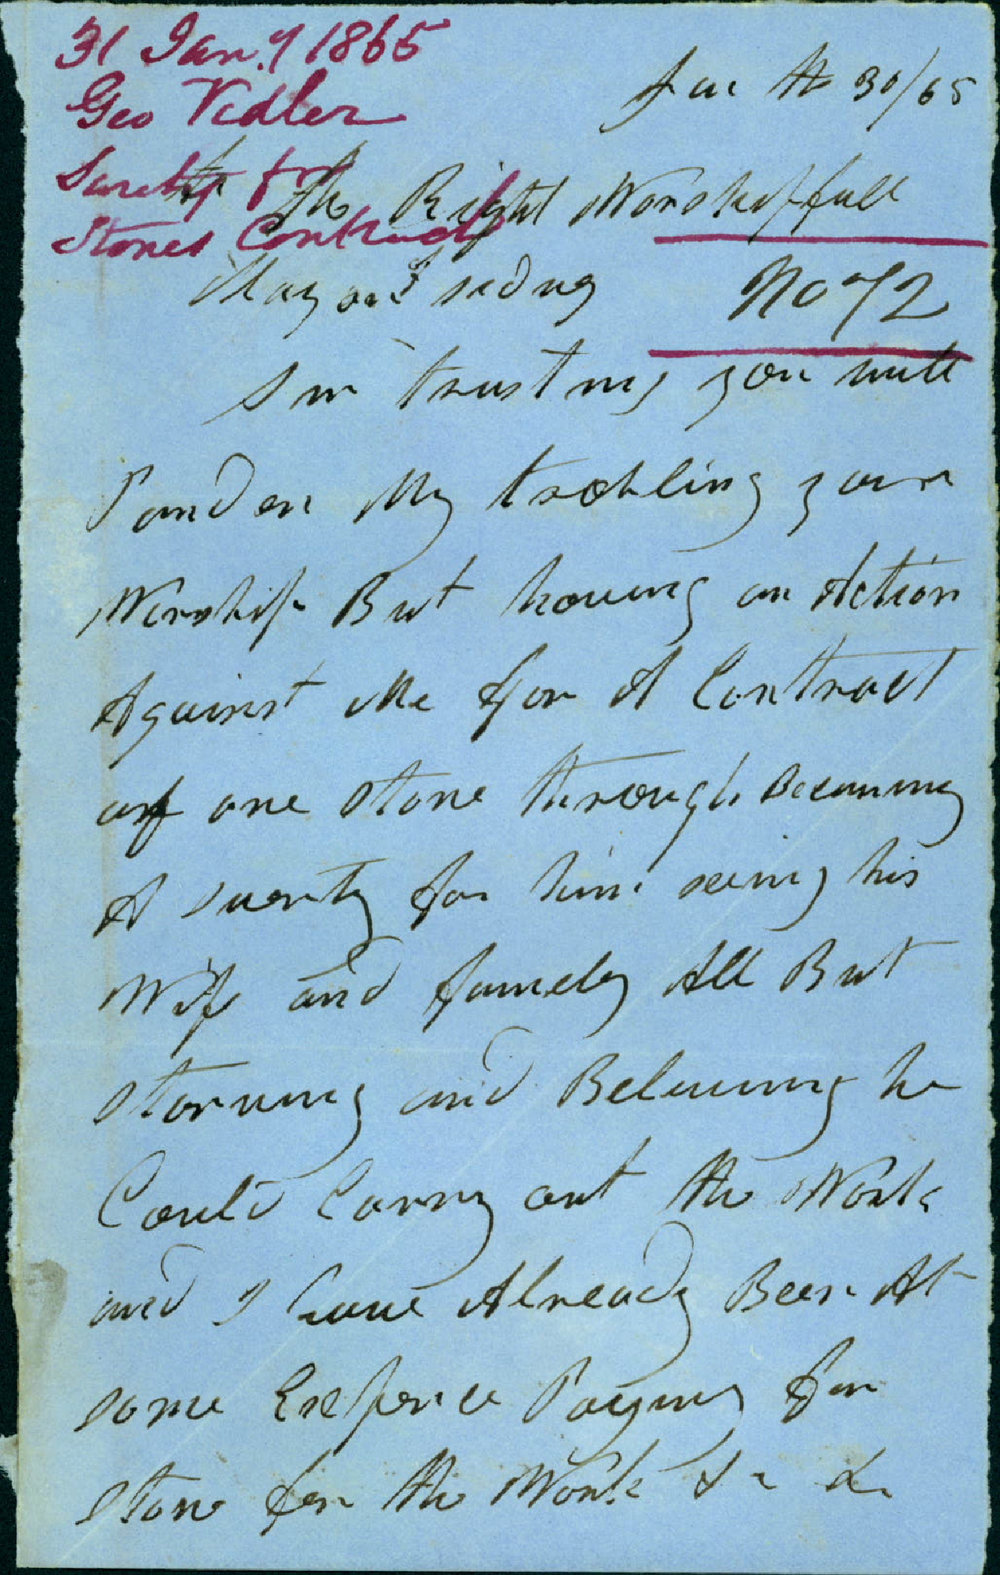 31 Jany 1865
Geo Vidler
Surety for
Stones Contract
Jan th 30/65
to the Right Worshipfull
Mayor of Sedny
No 72
Sir trusting you will
Parden My trobling your
Worship But having an Action
Against Me for A Contract
off one Stone through Becuming
A suerty for him seeing his
Wife and famely All But
Starving and Beleiving he
Could Carry out the Work
and I have Already Been At
some Expence Paying for
Stone for the Work &c &c